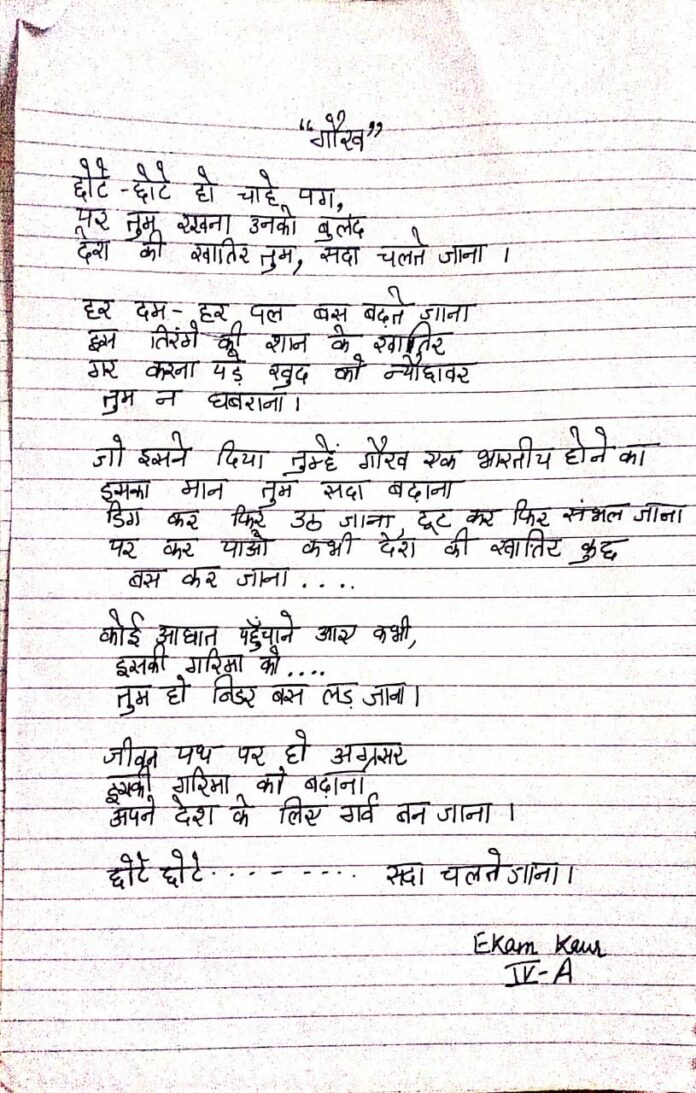 “गौरव”
छोटे-छोटे हो चाहे पग,
पर तुम रखना उनको बुलंद
देश की खातिर तुम, सदा चलते जाना ।
हर दम - हर पल बस बढ़ते जाना
इस तिरंगे की शान के खातिर
गर करना पड़े खुद को न्यौछावर
तुम न घबराना ।
जो इसने दिया तुम्हें गौरव एक भारतीय होने का
इसका मान तुम सदा बढ़ाना
डिग कर फिर उठ जाना, टूट कर फिर संभल जाना
पर कर पाओ कभी देश की खातिर कुछ
बस कर जाना ....
कोई आघात पहुँचाने आए कभी,
इसकी गरिमा को ....
तुम हो निडर बस लड़ जाना।
जीवन पथ पर हो अग्रसर
इसकी गरिमा को बढ़ाना
अपने देश के लिए गर्व बन जाना ।
छोटे छोटे . . . . - - - . . . . सदा चलते जाना ।
Ekam Kaur
IV-A